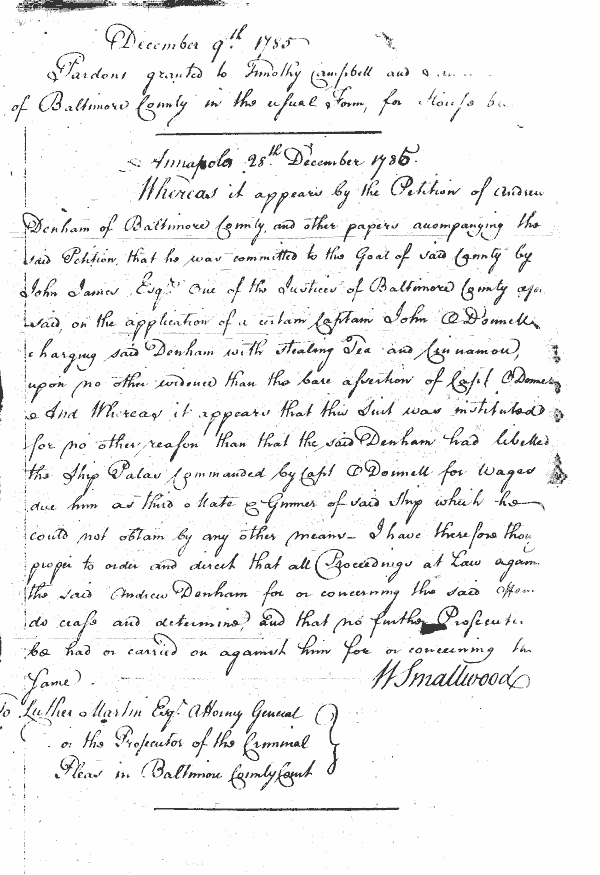 December 9th 1785
Pardons granted to Timothy Campbell and
of Baltimore County in the usual Form, for House
Annapolis 28th December 1785.
Whereas it appears by the Petition of Andrew
Denham of Baltimore County, and other papers acompanying the
said Petition, that he was committed to the Goal of said County by
John James Esqr. One of the Justices of Baltimore County
said, on the application of a certain Captain John O Donnell
charging said Denham with stealing Tea and Cinnamon,
upon no other evidence than the bare assertion of Capt O Donnell
And Whereas it appears that this Suit was instituted
for no other reason than that the said Denham had libelled
the Ship Palas Commanded by Capt O Donnell for Wages
due him as third Mate & Gunner of said Ship which he
could not obtain by any other means – I have therefore thou
proper to order and direct that all Proceedings at Law again
the said Andrew Denham for or concerning the said Offen
do cease and determine, and that no further Prosecutio
be had or carried on against him for or concerning the
same.
W Smallwood
To Luther Martin Esqr. Attorney General
or the Prosecutor of the Criminal
Pleas in Baltimore County Court